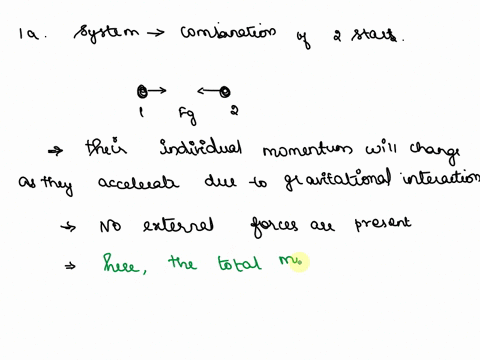 1a. System → Combination of 2 stars.
1 Fg 2
→ their individual momentum will change
as they accelerate due to gravitational interaction
→ No external forces are present
→ here, the total mo